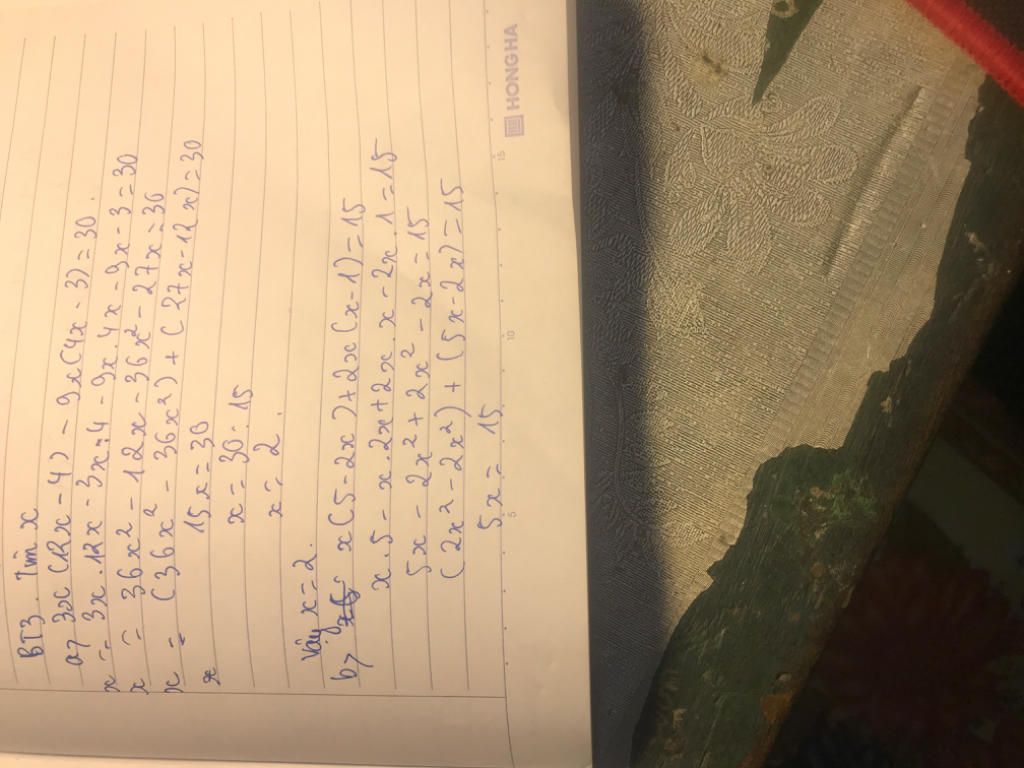 BT3. Tìm x
a7 3x(12x - 4) - 9x(4x - 3) = 30.
x = 3x.12x - 3x.4 - 9x.4x - 9x - 3 = 30
x = 36x² - 12x - 36x² - 27x = 30
x = (36x² - 36x²) + (27x - 12x) = 30
x 15x = 30
x = 30 : 15
x = 2.
Vậy x = 2.
b7 x(5 - 2x) + 2x(x - 1) = 15
x.5 - x.2x + 2x.x - 2x.1 = 15
5x - 2x² + 2x² - 2x = 15
(2x² - 2x²) + (5x - 2x) = 15
5x = 15
5 10 15
HONG HA